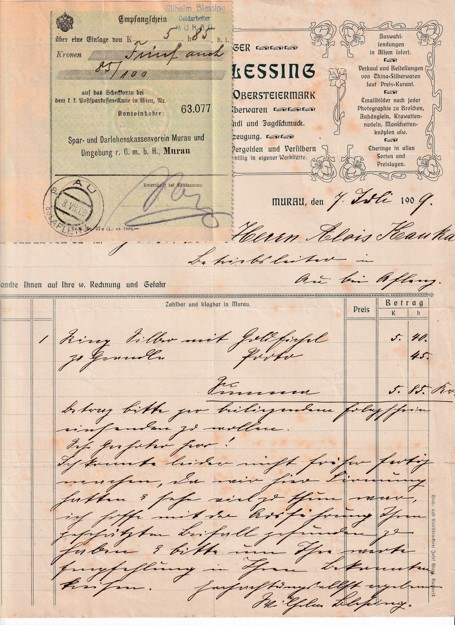 Wilhelm Blessing
Goldarbeiter
MURAU
Empfangschein
über eine Einlage von K 5 h 85
Kronen Fünf auch
85/100
auf das Scheckkonto bei
dem k. k. Postsparkassen-Amte in Wien, Nr.
Kontoinhaber: 63.077
Spar- und Darlehenskassenverein Murau und
Umgebung r. G. m. b. H., Murau
AU
8.VII.09
AFLENZ
GER
LESSING
OBERSTEIERMARK
lberwaren
ndl und Jagdschmuck.
zeugung.
Vergolden und Versilbern
billig in eigener Werkstätte.
Auswahl-
sendungen
in Allem sofort.
Verkauf und Beistellungen
von China-Silberwaren
laut Preis-Kurant.
Emailbilder nach jeder
Photographie zu Broschen,
Anhängseln, Krawatten-
nadeln, Manschetten-
knöpfen etc.
Eheringe in allen
Sorten und
Preislagen.
MURAU, den 7. Juli 1909.
Herrn Alois Hauka
Betriebsleiter in
Au bei Aflenz.
andte Ihnen auf Ihre w. Rechnung und Gefahr
Zahlbar und klagbar in Murau.
Preis
Betrag
K h
1 Ring Silber mit Goldsichel 5. 40.
zo Grandln Porto 45.
Summa 5. 85. Kr
Betrag bitte per beiliegendem Erlagschein
einsenden zu wollen.
Sehr Geehrter Herr!
Ich konnte leider nicht früher fertig
machen, da wir hier Firmung
hatten & sehr viel zu thun war,
ich hoffe mit der Ausführung Ihren
geschätzten Beifall gefunden zu
haben & bitte um Ihre werte
Empfehlung in Ihren Bekannten
kreisen. Hochachtungsvollst ergebenst
Wilhelm Blessing.